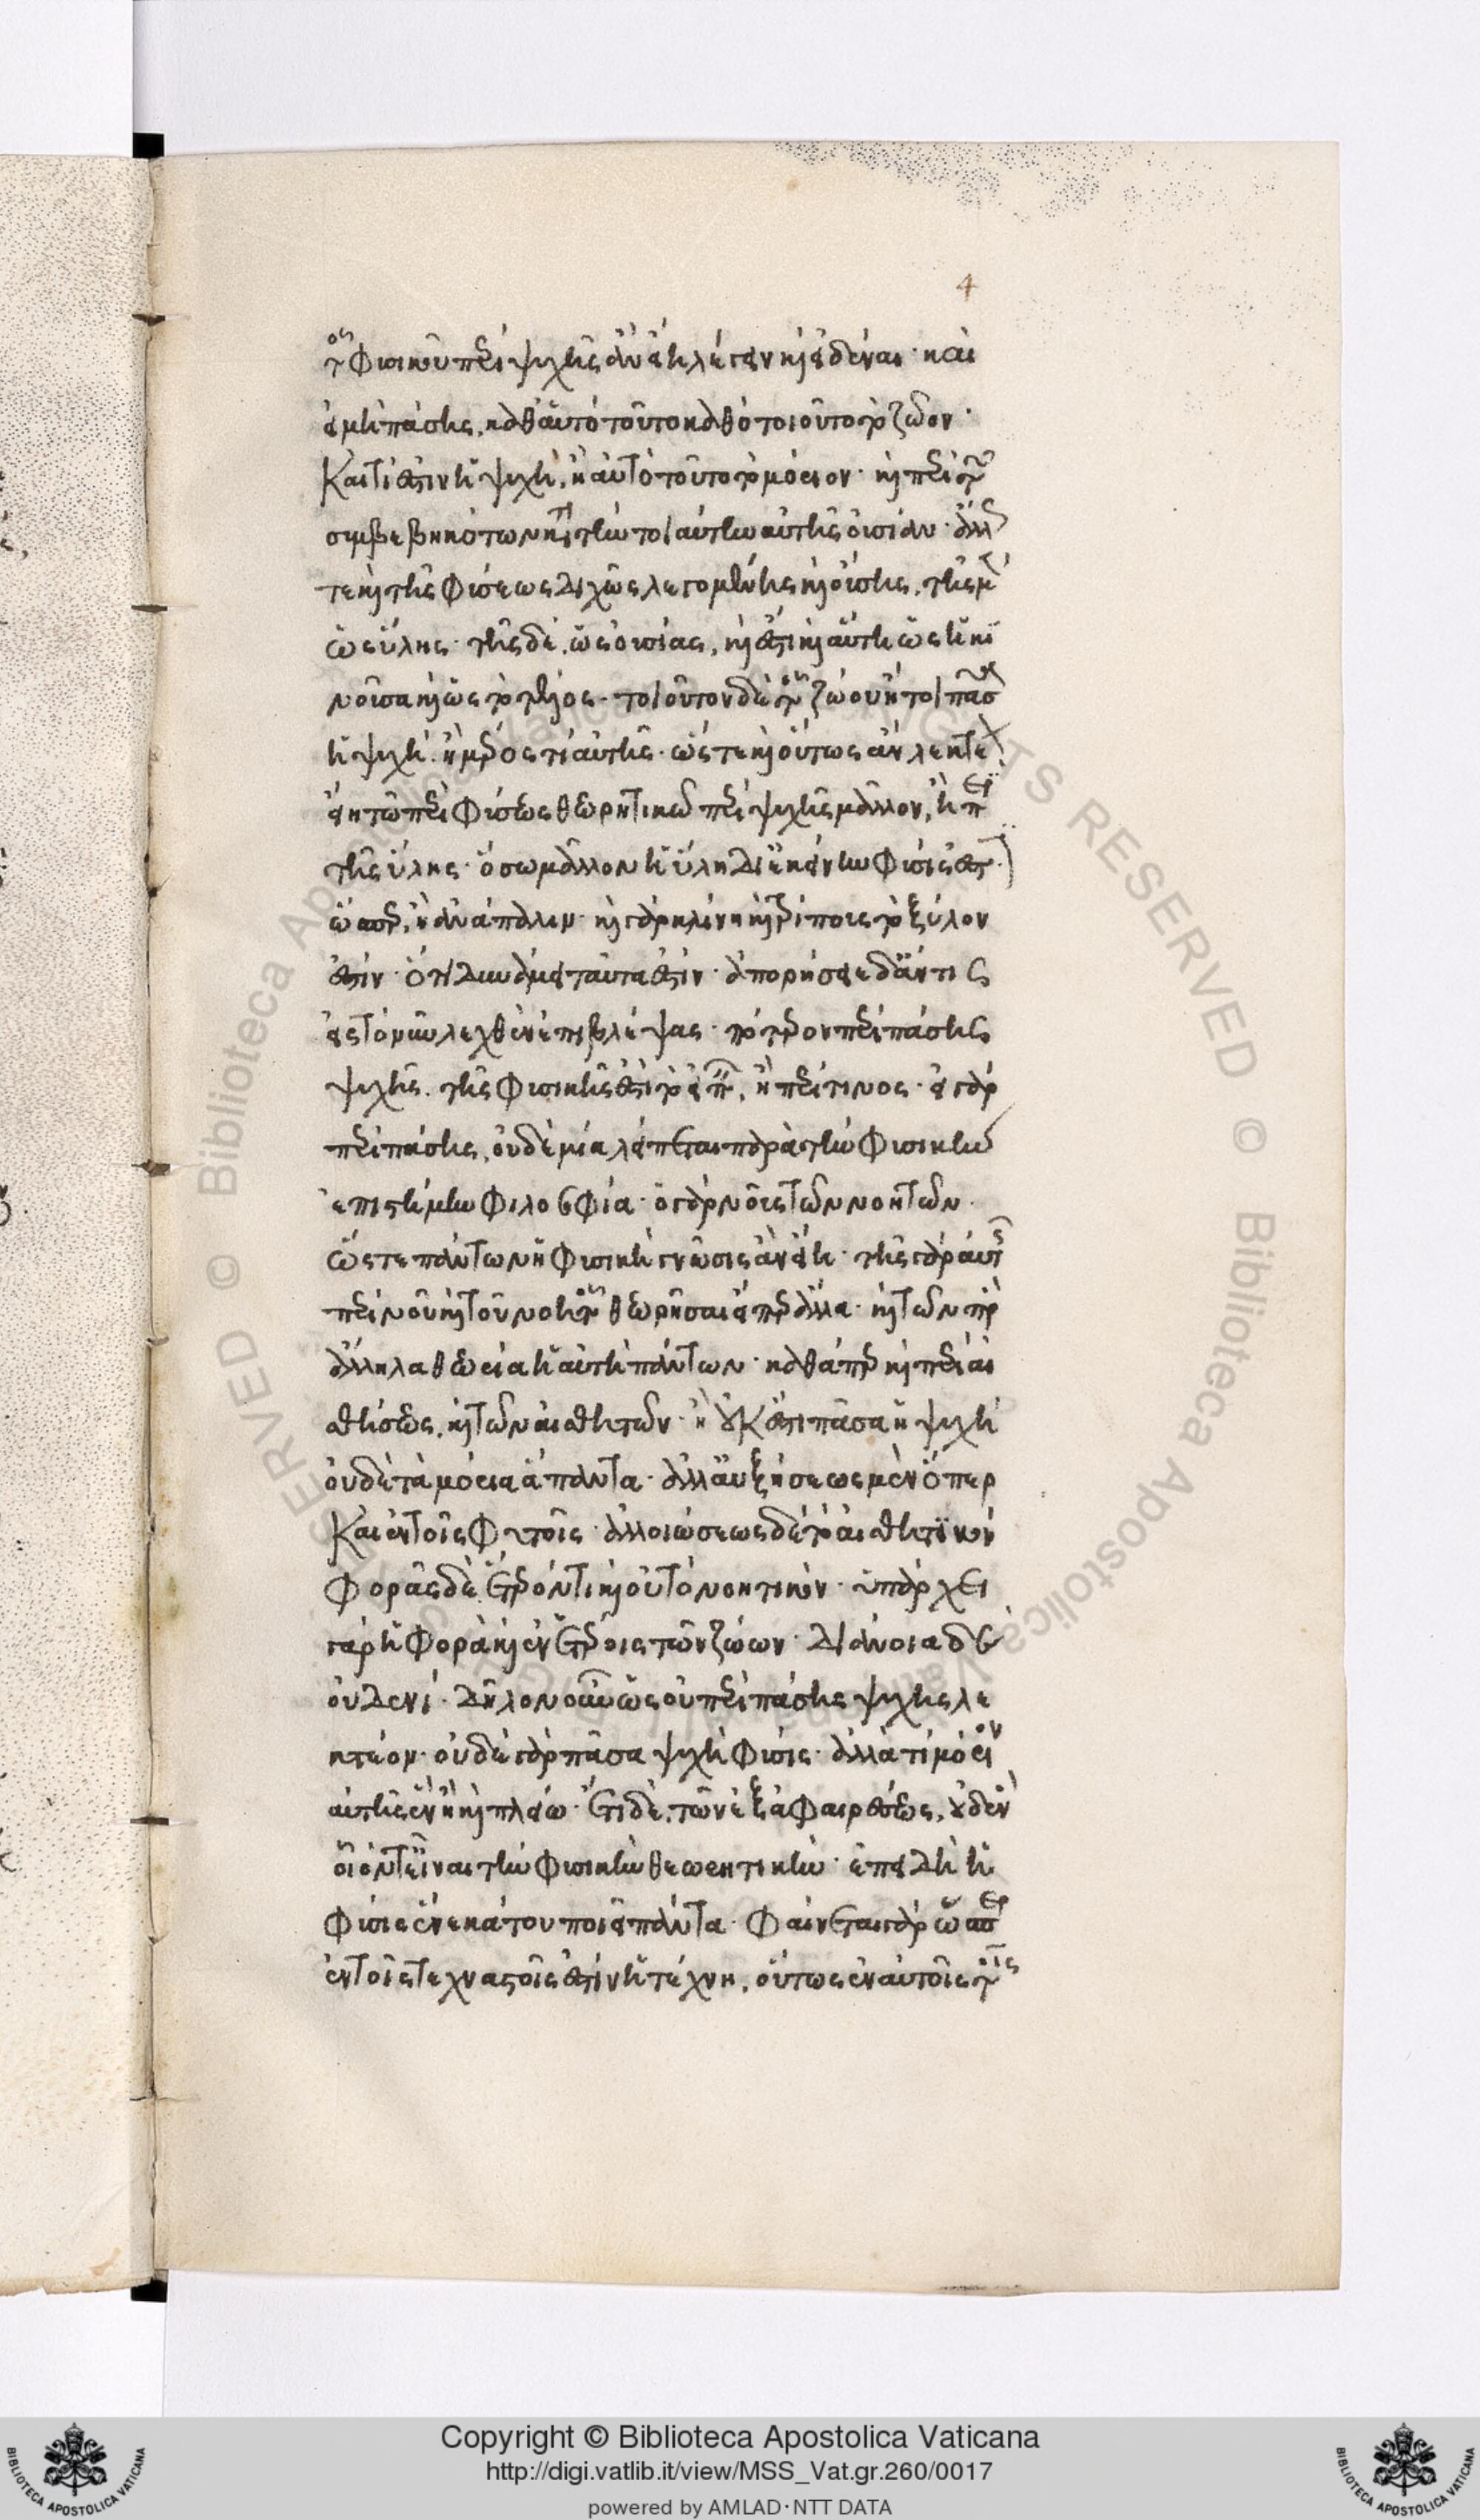 4
τοῦ φυσικοῦ περὶ ψυχῆς ἂν εἴη λέγειν καὶ εἰδέναι· καὶ
εἰ μὴ πάσης, καθ' αὐτὸ τοῦτο καθὸ τοιοῦτο τὸ ζῶον·
Καὶ τί ἐστιν ἡ ψυχή, ἢ αὐτὸ τοῦτο τὸ μόριον· καὶ περὶ τῶν
συμβεβηκότων κατὰ τὴν τοιαύτην αὐτῆς οὐσίαν· ἄλλως
τε καὶ τῆς φύσεως διχῶς λεγομένης καὶ οὔσης, τῆς μὲν
ὡς ὕλης· τῆς δὲ, ὡς οὐσίας, καὶ ἔστι καὶ αὕτη ὡς ἡ κι
νοῦσα καὶ ὡς τὸ τέλος· τοιοῦτον δὲ τοῦ ζώου ἤτοι πᾶσα
ἡ ψυχή· ἢ μέρος τι αὐτῆς· ὥστε καὶ οὕτως ἂν λεκτέον
εἴη τῶ περὶ φύσεως θεωρητικῶ περὶ ψυχῆς μᾶλλον, ἢ περὶ
τῆς ὕλης· ὅσω μᾶλλον ἡ ὕλη δι' ἐκείνην φύσις ἐστιν
ὥσπερ, ἢ ἀνάπαλιν· καὶ γὰρ κλίνη καὶ τρίπους τὸ ξύλον
ἐστίν· ὅτι δυνάμει ταῦτα ἐστίν· ἀπορήσειε δ' ἄν τις
εἰς τὸ νῦν λεχθὲν ἐπιβλέψας· πότερον περὶ πάσης
ψυχῆς τῆς φυσικῆς ἐστι τὸ εἰπεῖν, ἢ περί τινος· εἰ γὰρ
περὶ πάσης, οὐδεμία λείπεται παρὰ τὴν φυσικὴν
ἐπιστήμην φιλοσοφία· ὁ γὰρ νοῦς τῶν νοητῶν·
ὥστε πάντων ἡ φυσικὴ γνῶσις ἂν εἴη· τῆς γὰρ αὐτῆς
περὶ νοῦ καὶ τοῦ νοητοῦ θεωρῆσαι εἴπερ ἄλληλα· καὶ τῶν πρὸς
ἄλληλα θεωρία ἡ αὐτὴ πάντων· καθάπερ καὶ περὶ αἰ
σθήσεως, καὶ τῶν αἰσθητῶν· ἢ οὐκ ἔστι πᾶσα ἡ ψυχὴ
οὐδὲ τὰ μόρια ἅπαντα· ἀλλ' αὐξήσεως μὲν ὅπερ
Καὶ ἐν τοῖς φυτοῖς· ἀλλοιώσεως δὲ τὸ αἰσθητικόν
φορᾶς δὲ ἕτερόν τι καὶ οὐ τὸ νοητικόν· ὑπάρχει
γὰρ ἡ φορὰ καὶ ἐν ἑτέροις τῶν ζώων· διάνοια δ'
οὐδενί· δῆλον οὖν ὡς οὐ περὶ πάσης ψυχῆς λε
κτέον· οὐδὲ γὰρ πᾶσα ψυχὴ φύσις· ἀλλά τι μόριον
αὐτῆς ἓν ἢ καὶ πλείω· ἔτι δὲ, τῶν ἐξ ἀφαιρέσεως, οὐδενὸς
οἷόν τ' εἶναι τὴν φυσικὴν θεωρητικήν· ἐπειδὴ ἡ
φύσις ἕνεκά του ποιεῖ πάντα· φαίνεται γὰρ ὥσπερ
ἐν τοῖς τεχναστοῖς ἐστὶν ἡ τέχνη, οὕτως ἐν αὐτοῖς τοῖς
© Biblioteca Apostolica Vaticana
RIGHTS RESERVED
Copyright © Biblioteca Apostolica Vaticana
http://digi.vatlib.it/view/MSS_Vat.gr.260/0017
powered by AMLAD·NTT DATA
BIBLIOTECA APOSTOLICA VATICANA
BIBLIOTECA APOSTOLICA VATICANA